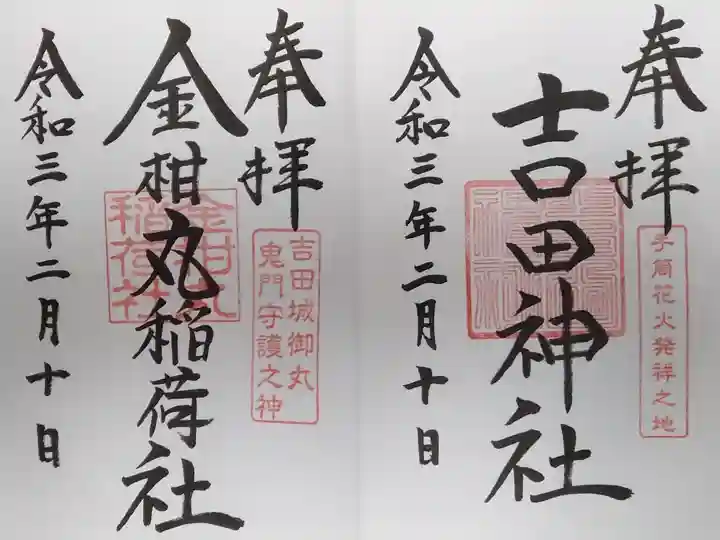 奉拝
吉田神社
令和三年二月十日
手筒花火発祥之地
奉拝
金柑丸稲荷社
令和三年二月十日
吉田城御丸
鬼門守護之神
金柑丸
稲荷社